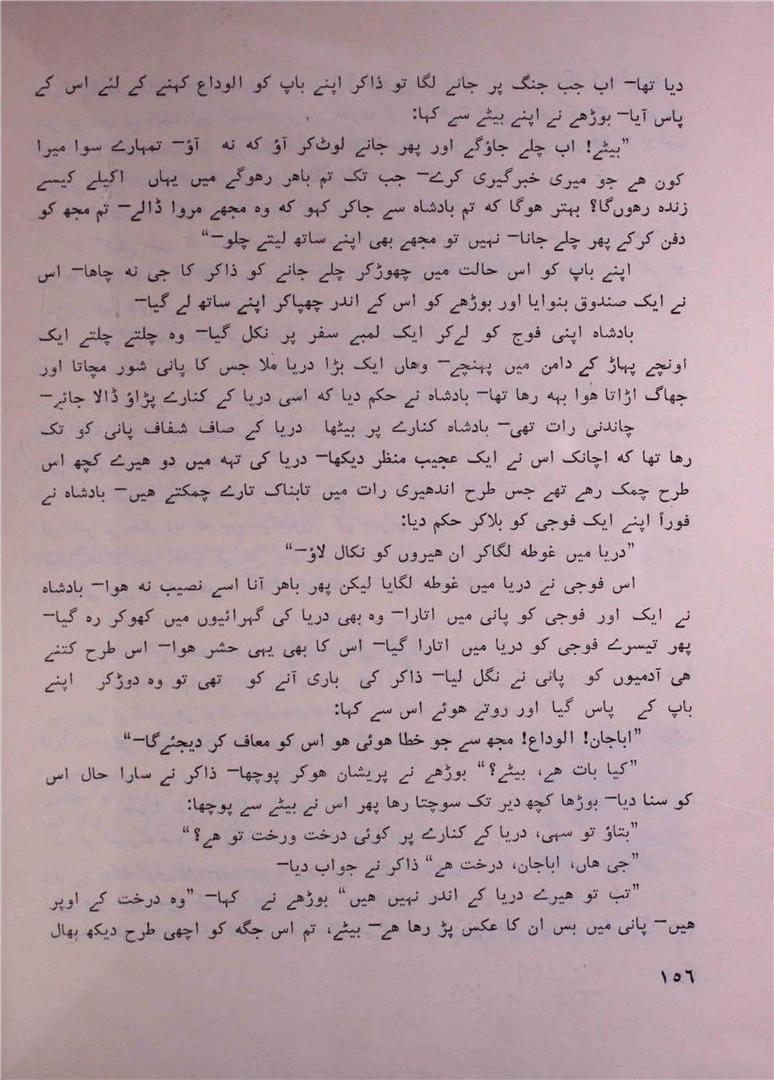 دیا تھا— اب جب جنگ پر جانے لگا تو ذاکر اپنے باپ کو الوداع کہنے کے لئے اس کے
پاس آیا— بوڑھے نے اپنے بیٹے سے کہا:
”بیٹے! اب چلے جاؤگے اور پھر جانے لوٹ‌کر آؤ کہ نہ آؤ— تمہارے سوا میرا
کون ھے جو میری خبرگیری کرے— جب تک تم باھر رھوگے میں یہاں اکیلے کیسے
زندہ رھوں‌گا؟ بہتر ھوگا کہ تم بادشاہ سے جاکر کہو کہ وہ مجھے مروا ڈالے— تم مجھ کو
دفن کرکے پھر چلے جانا— نہیں تو مجھے بھی اپنے ساتھ لیتے چلو—“
اپنے باپ کو اس حالت میں چھوڑکر چلے جانے کو ذاکر کا جی نہ چاھا— اس
نے ایک صندوق بنوایا اور بوڑھے کو اس کے اندر چھپاکر اپنے ساتھ لے گیا—
بادشاہ اپنی فوج کو لے‌کر ایک لمبے سفر پر نکل گیا— وہ چلتے چلتے ایک
اونچے پہاڑ کے دامن میں پہنچے— وھاں ایک بڑا دریا ملا جس کا پانی شور مچاتا اور
جھاگ اڑاتا ھوا بہہ رھا تھا— بادشاہ نے حکم دیا کہ اسی دریا کے کنارے پڑاؤ ڈالا جائے—
چاندنی رات تھی— بادشاہ کنارے پر بیٹھا دریا کے صاف شفاف پانی کو تک
رھا تھا کہ اچانک اس نے ایک عجیب منظر دیکھا— دریا کی تہہ میں دو ھیرے کچھ اس
طرح چمک رھے تھے جس طرح اندھیری رات میں تابناک تارے چمکتے ھیں— بادشاہ نے
فوراً اپنے ایک فوجی کو بلاکر حکم دیا:
”دریا میں غوطہ لگاکر ان ھیروں کو نکال لاؤ—“
اس فوجی نے دریا میں غوطہ لگایا لیکن پھر باھر آنا اسے نصیب نہ ھوا— بادشاہ
نے ایک اور فوجی کو پانی میں اتارا— وہ بھی دریا کی گہرائیوں میں کھوکر رہ گیا—
پھر تیسرے فوجی کو دریا میں اتارا گیا— اس کا بھی یہی حشر ھوا— اس طرح کتنے
ھی آدمیوں کو پانی نے نگل لیا— ذاکر کی باری آنے کو تھی تو وہ دوڑکر اپنے
باپ کے پاس گیا اور روتے ھوئے اس سے کہا:
”اباجان! الوداع! مجھ سے جو خطا ھوئی ھو اس کو معاف کر دیجئے‌گا—“
”کیا بات ھے، بیٹے؟“ بوڑھے نے پریشان ھوکر پوچھا— ذاکر نے سارا حال اس
کو سنا دیا— بوڑھا کچھ دیر تک سوچتا رھا پھر اس نے بیٹے سے پوچھا:
”بتاؤ تو سہی، دریا کے کنارے پر کوئی درخت ورخت تو ھے؟“
”جی ھاں، اباجان، درخت ھے“ ذاکر نے جواب دیا—
”تب تو ھیرے دریا کے اندر نہیں ھیں“ بوڑھے نے کہا— ”وہ درخت کے اوپر
ھیں— پانی میں بس ان کا عکس پڑ رھا ھے— بیٹے، تم اس جگہ کو اچھی طرح دیکھ بھال
۱۵٦